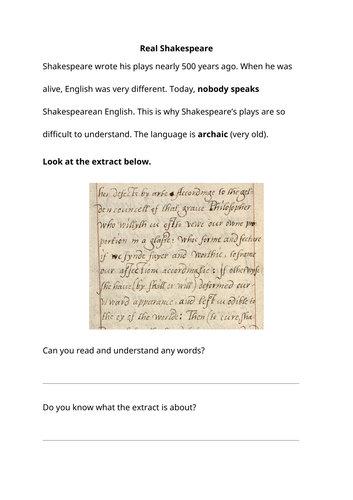 Real Shakespeare
Shakespeare wrote his plays nearly 500 years ago. When he was
alive, English was very different. Today, nobody speaks
Shakespearean English. This is why Shakespeare's plays are so
difficult to understand. The language is archaic (very old).
Look at the extract below.
her defecte by arte Accordinge to the
councell of that graue Philosopher
who willyth us ofte vewe our owne
portion in a glasse: whos forme and
if we fynde fayer and worthie, to frame
our affection accordinglie: if otherwyse
she haue (by skill or will) deformed our
apparance, and left us odible to
the ey of the worlde: Then to cure,
Can you read and understand any words?
Do you know what the extract is about?